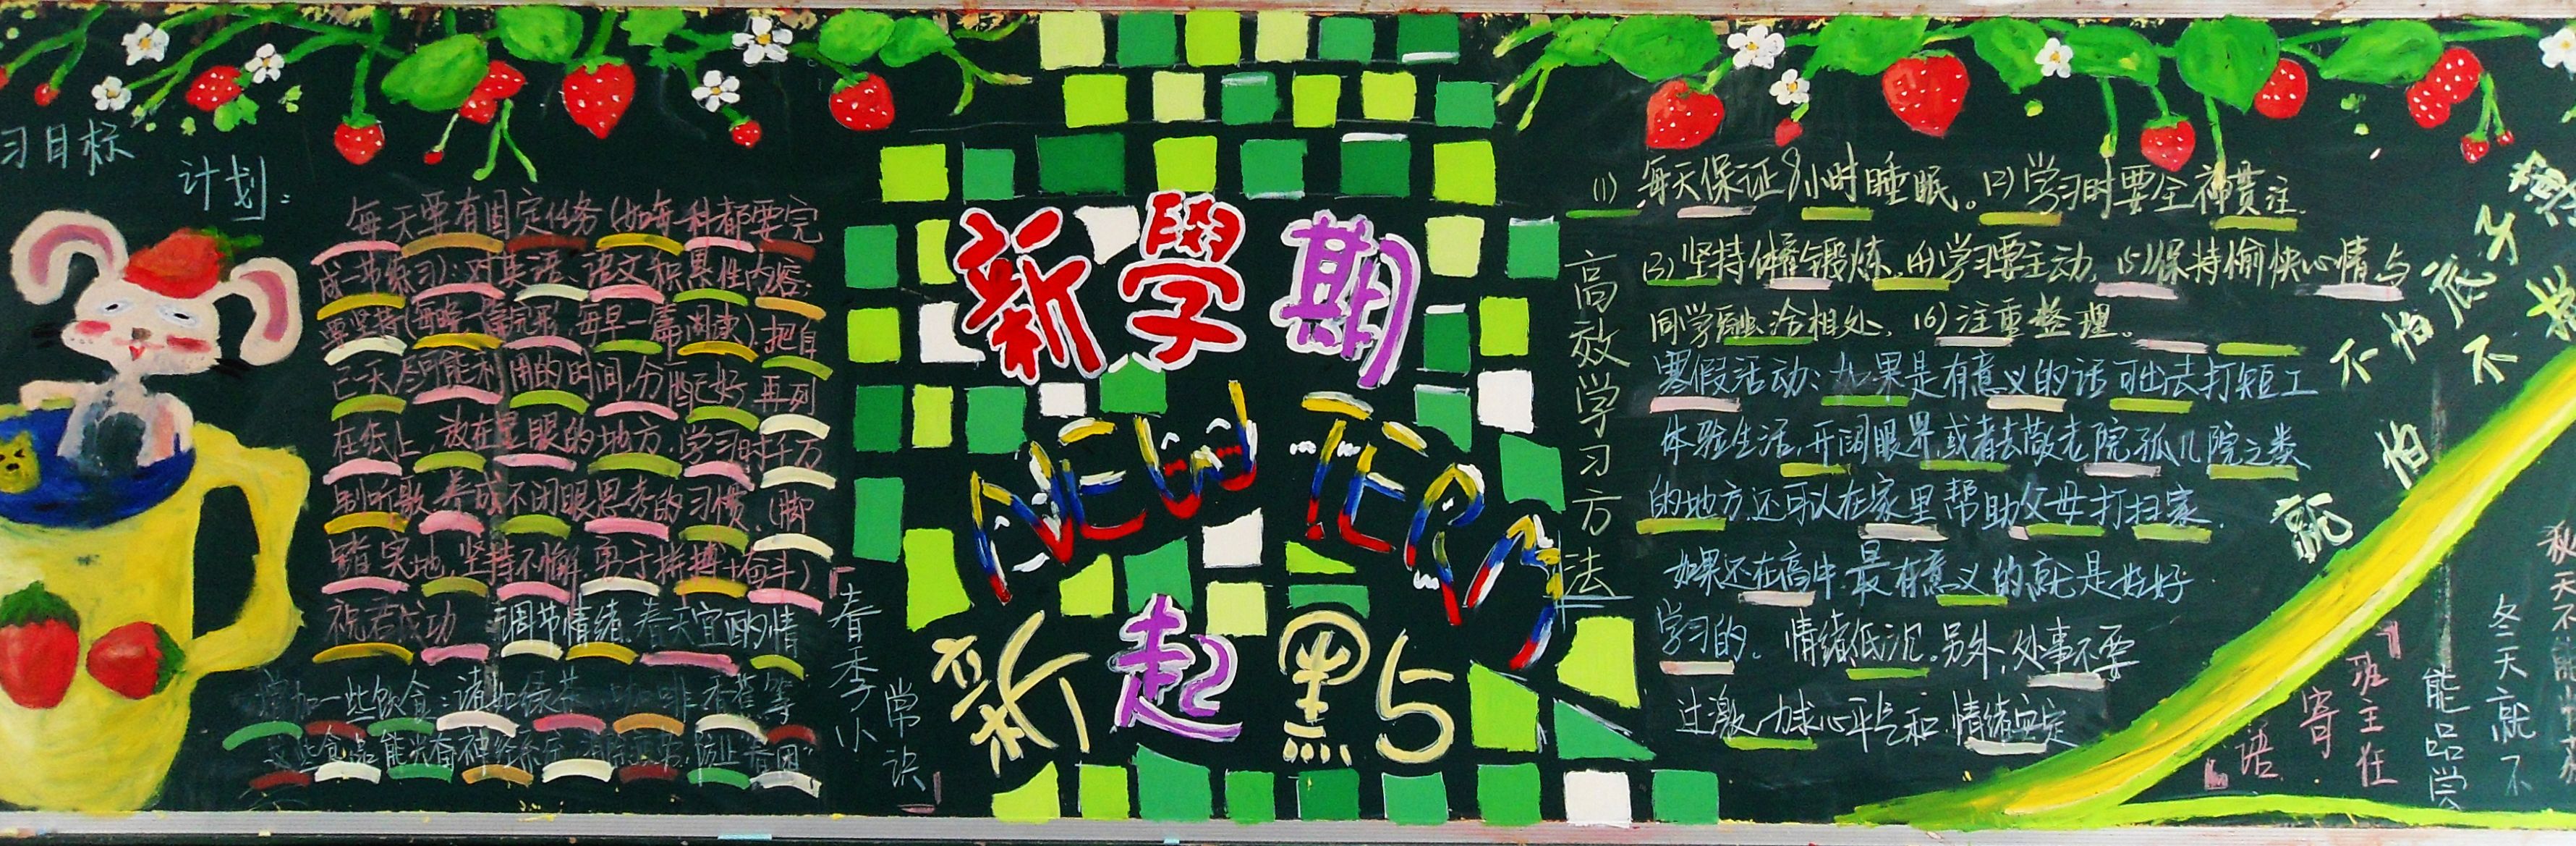 习目标
计划：
每天要有固定任务(如每科都要完
成一节练习)；对英语、语文积累性内容，
要坚持(每晚一篇完形，每早一篇阅读)；把自
己一天尽可能利用的时间，分配好，再列
在纸上，放在显眼的地方，学习时千万
别听歌，养成不闭眼思考的习惯。(脚
踏实地，坚持不懈，勇于拼搏+奋斗)
祝君成功
调节情绪，春天宜酌情
增加一些饮食：诸如绿茶、咖啡、香蕉等
这些食品能兴奋神经系统，消除疲劳，防止春困
「春季小
常识」
新學期
NEW TERM
新起點5
高效学习方法
(1) 每天保证8小时睡眠。(2)学习时要全神贯注.
(3)坚持体育锻炼.(4)学习要主动,(5)保持愉快心情与
同学融洽相处,(6)注重整理。
寒假活动：如果是有意义的话可出去打短工
体验生活,开阔眼界,或者去敬老院孤儿院之类
的地方,还可以在家里帮助父母打扫家.
如果还在高中,最有意义的就是好好
学习的。
情绪低沉。另外,处事不要
过激,力求心平气和,情绪安定
不怕底子
就怕不
班主任
寄
语
冬天就不
能品尝
秋天不能